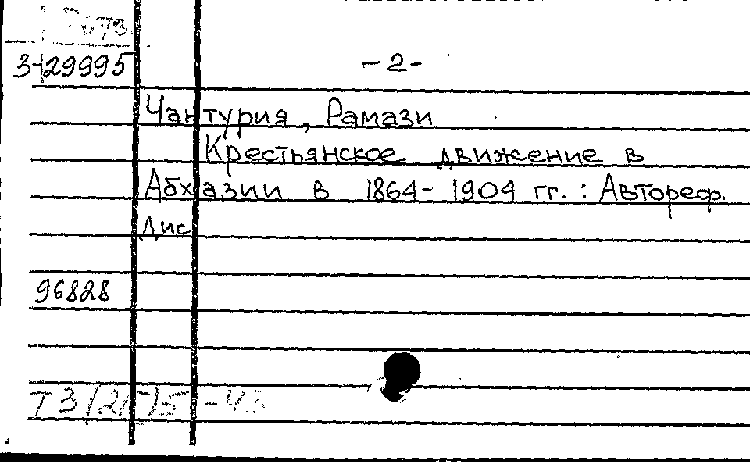 3-29995
-2-
Чантурия, Рамази
Крестьянское движение в
Абхазии в 1864-1904 гг. : Автореф.
Дис
96828